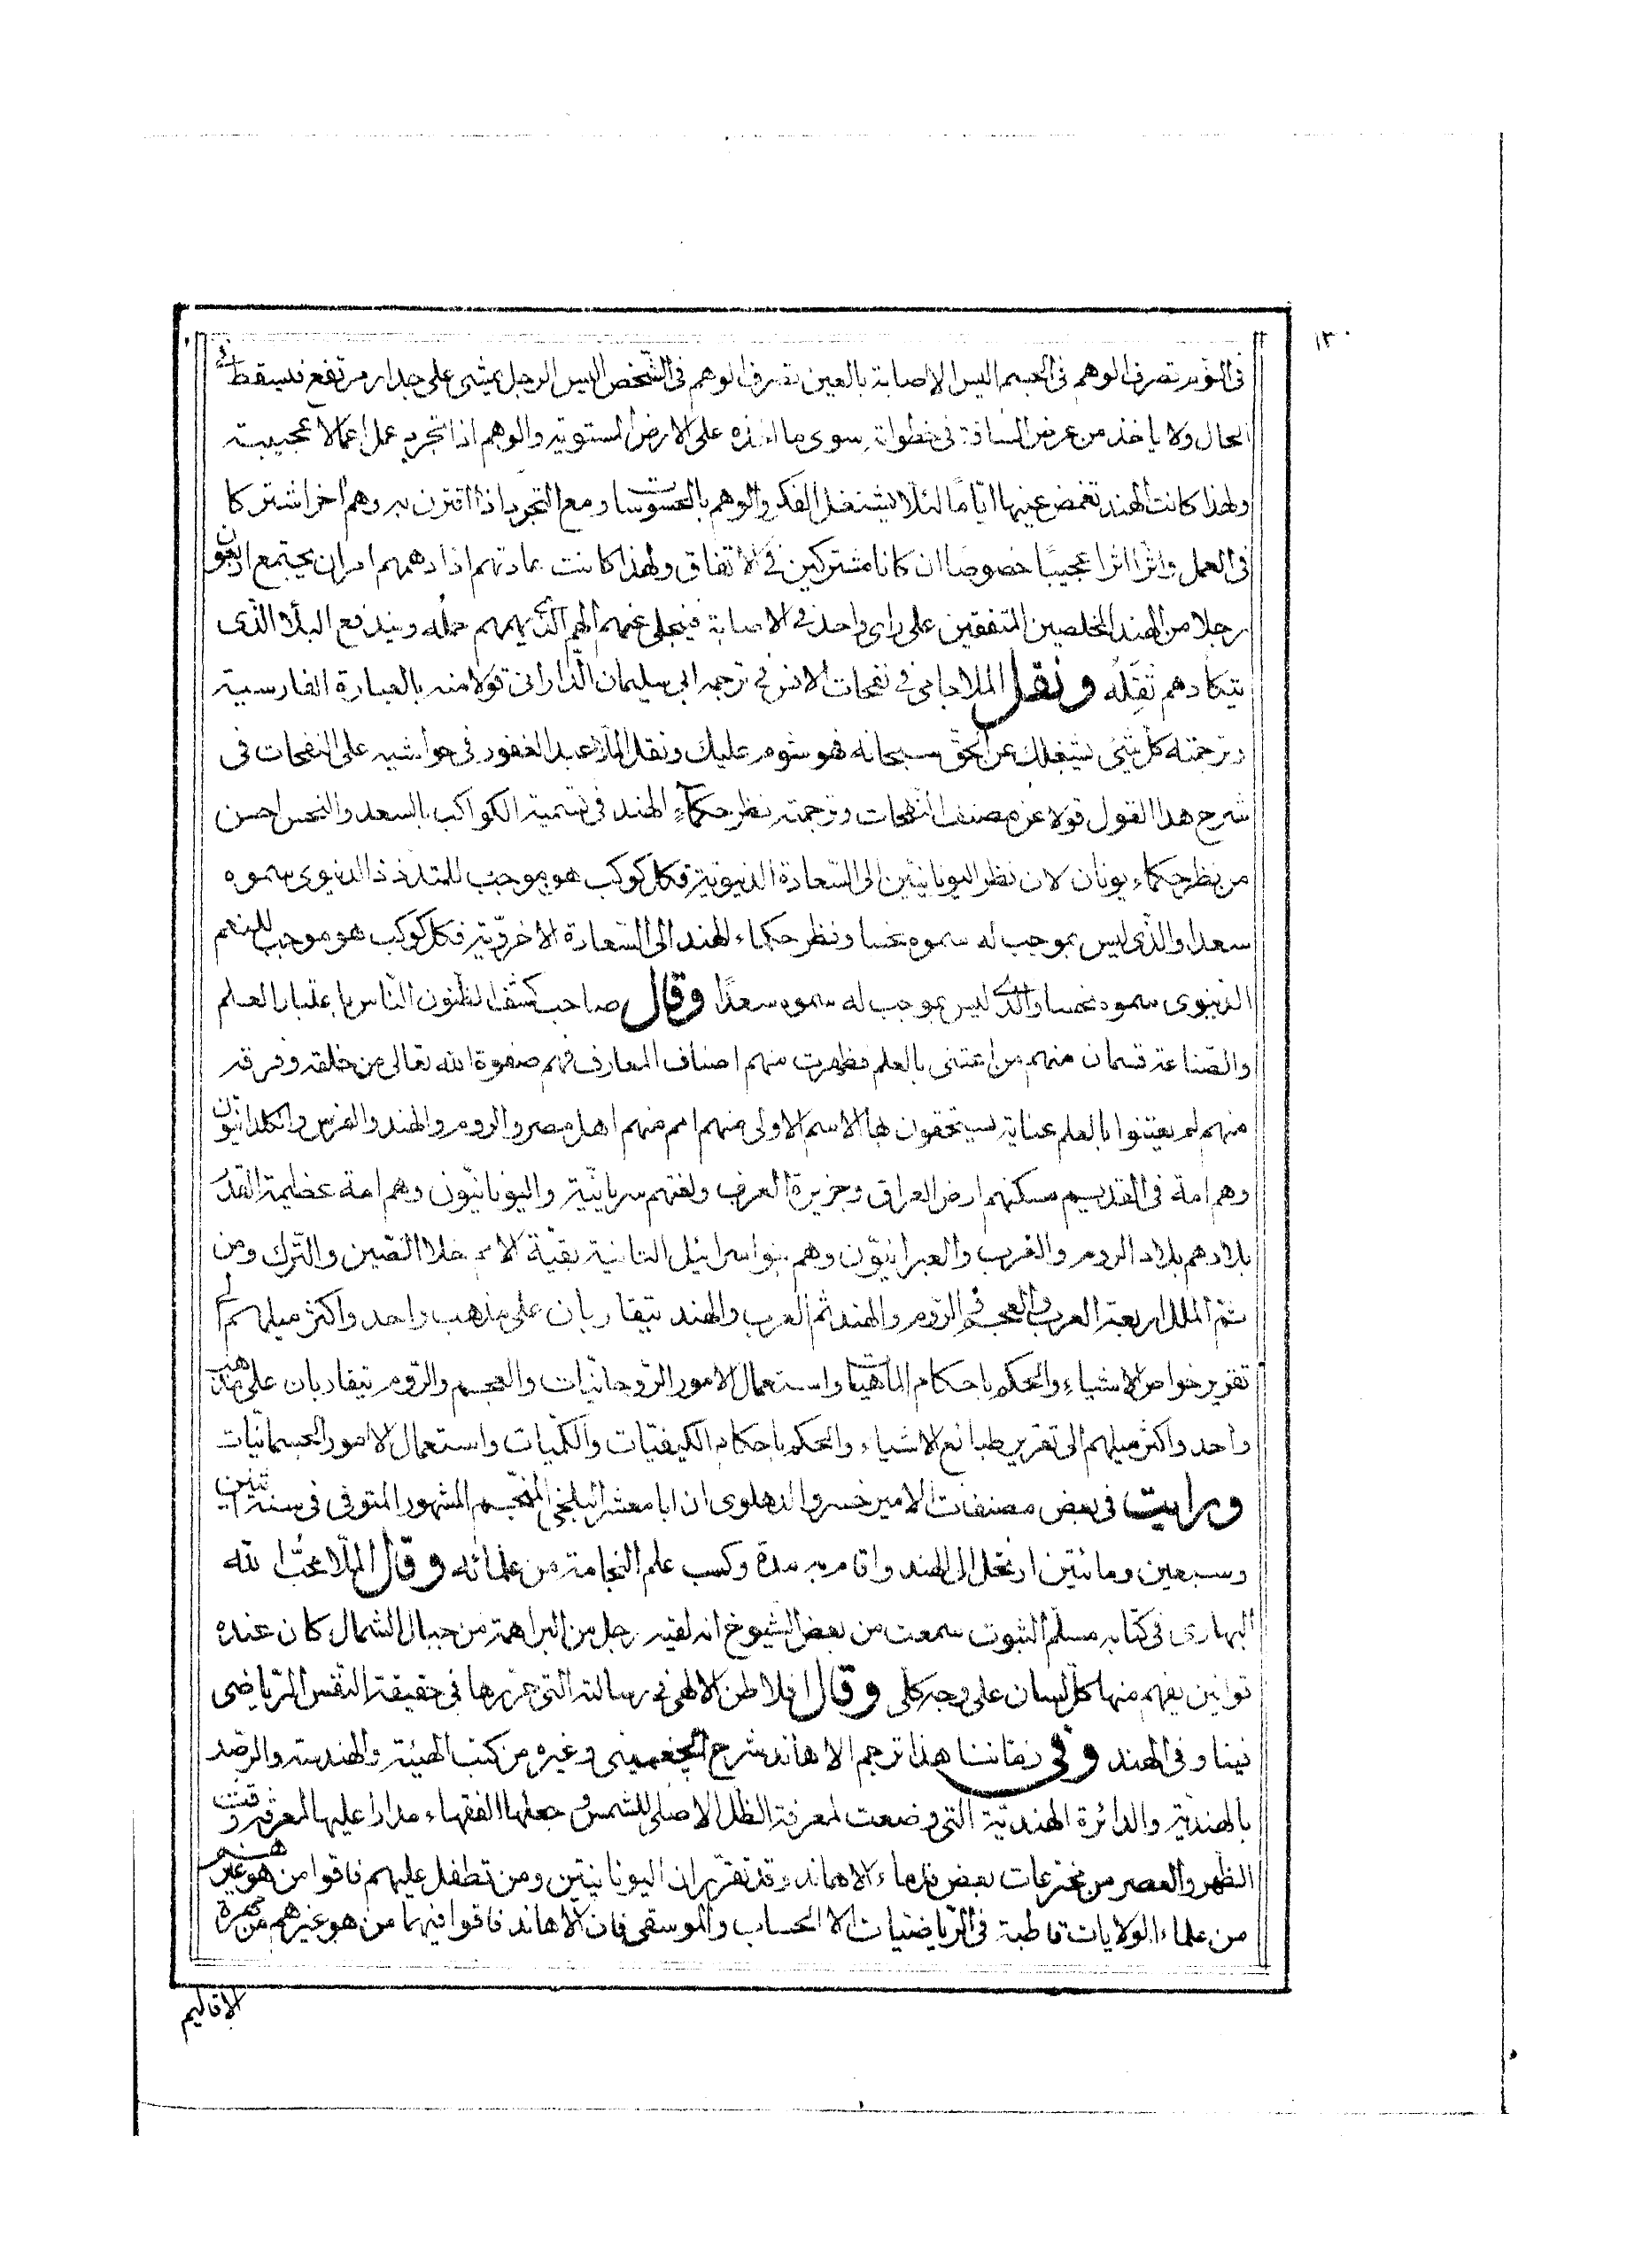 ١٣٠
فى التؤثر تصرف الوهم فى الجسم اليس الاصابة بالعين تصرف الوهم فى الشخص اليس الرجل يمشى على جدار مرتفع فيسقط فى
الحال ولا ياخذ من عرض المسافة فى خطواته سوى ما اخذه على الارض المستوية والوهم اذا تجرد عمل اعمالا عجيبة
ولهذا كانت الهند تغمض عينيها ايّاما لئلا يشتغل الفكر والوهم بالمحسوسات ومع التجرد اذا اقترن به وهم اخر اشتركا
فى العمل واثرا اثرا عجيبًا خصوصًا ان كانا مشتركين فى الاتفاق ولهذا كانت عادتهم اذا دهمهم امر ان يجتمع اربعون
رجلا من الهند المخلصين المتفقين على راى واحد فى الاصابة فينجلى عنهم المهم الذى يهمهم حمله ويندفع البلا الذى
يتكادهم ثقله ونقل الملا جامى فى نفحات الانس فى ترجمه ابى سليمان الدارانى قولا منه بالعبارة الفارسية
وترجمته كل شيئ يشغلك عن الحق سبحانه فهو شوم عليك ونقل الملا عبد الغفور فى حواشيه على النفحات فى
شرح هذا القول قولا عن مصنف النفحات وترجمته نظر حكماء الهند فى تسمية الكواكب بالسعد والنحس احسن
من نظر حكماء يونان لان نظر اليونانيّين الى السّعادة الدنيوية فكل كوكب هو موجب للتلذذ الدنيوى سموه
سعدا والذى ليس بموجب له سموه نحسا ونظر حكماء الهند الى السّعادة الاخرويّة فكل كوكب هو موجب للتنعم
الدنيوى سموه نحسا والذى ليس بموجب له سموه سعدًا وقال صاحب كشف الظنون الناس باعتبار العلم
والصّناعة قسمان منهم من اعتنى بالعلم فظهرت منهم اصناف المعارف فهم صفوة الله تعالى من خلقه وفرقه
منهم لم يعتنوا بالعلم عناية يستحقون بها الاسم الاولى منهم امم منهم اهل مصر والروم والهند والفرس والكلدانيّون
وهم امة فى القديم مسكنهم ارض العراق وجزيرة العرب ولغتهم سريانيّة واليونانيّون وهم امة عظيمة القدر
بلادهم بلاد الروم والغرب والعبرانيّون وهم بنو اسرائيل الثانية بقيّة الامم خلا الصّين والتّرك ومن
ثمّ الملل اربعة العرب والعجم والرّوم والهند ثم العرب والهند يتقاربان على مذهب واحد واكثر ميلهم الى
تقرير خواص الاشياء والحكم باحكام الماهيات واستعمال الامور الرّوحانيّات والعجم والرّوم يتقاربان على مذهب
واحد واكثر ميلهم الى تقرير طبائع الاشياء والحكم باحكام الكيفيّات والكمّيات واستعمال الامور الجسمانيّات
ورايت فى بعض مصنفات الامير خسرو الدهلوى ان ابا معشر البلخى المنجّم المشهور المتوفى فى سنة اثنتين
وسبعين ومائتين ارتحل الى الهند واقام به مدة وكسب علم النجامة من علمائه وقال الملا محبّ الله
البهارى فى كتابه مسلّم الثبوت سمعت من بعض الشيوخ انه لقيه رجل من البراهمة من جبال الشمال كان عنده
قوانين يفهم منها كلّ لسان على وجه كلى وقال افلاطن الالهى فى رسالته التى حررها فى حقيقة النّفس الرّياضى
فينا وفى الهند وفى زماننا هذا ترجم الاهاند شرح الچغمينى وغيره من كتب الهيئة والهندسة والرصد
بالهندية والدائرة الهنديّة التى وضعت لمعرفة الظل الاصلى للشمس وجعلها الفقهاء مدارا عليها لمعرفة وقت
الظهر والعصر من مخترعات بعض قدماء الاهاند وقد تقرّر ان اليونانيّين ومن تطفل عليهم فاقوا من هو غيرهم
من علماء الولايات قاطبة فى الرّياضيّات الا الحساب والموسقى فان الاهاند فاقوا فيهما من هو غيرهم من مهرة
الاقاليم